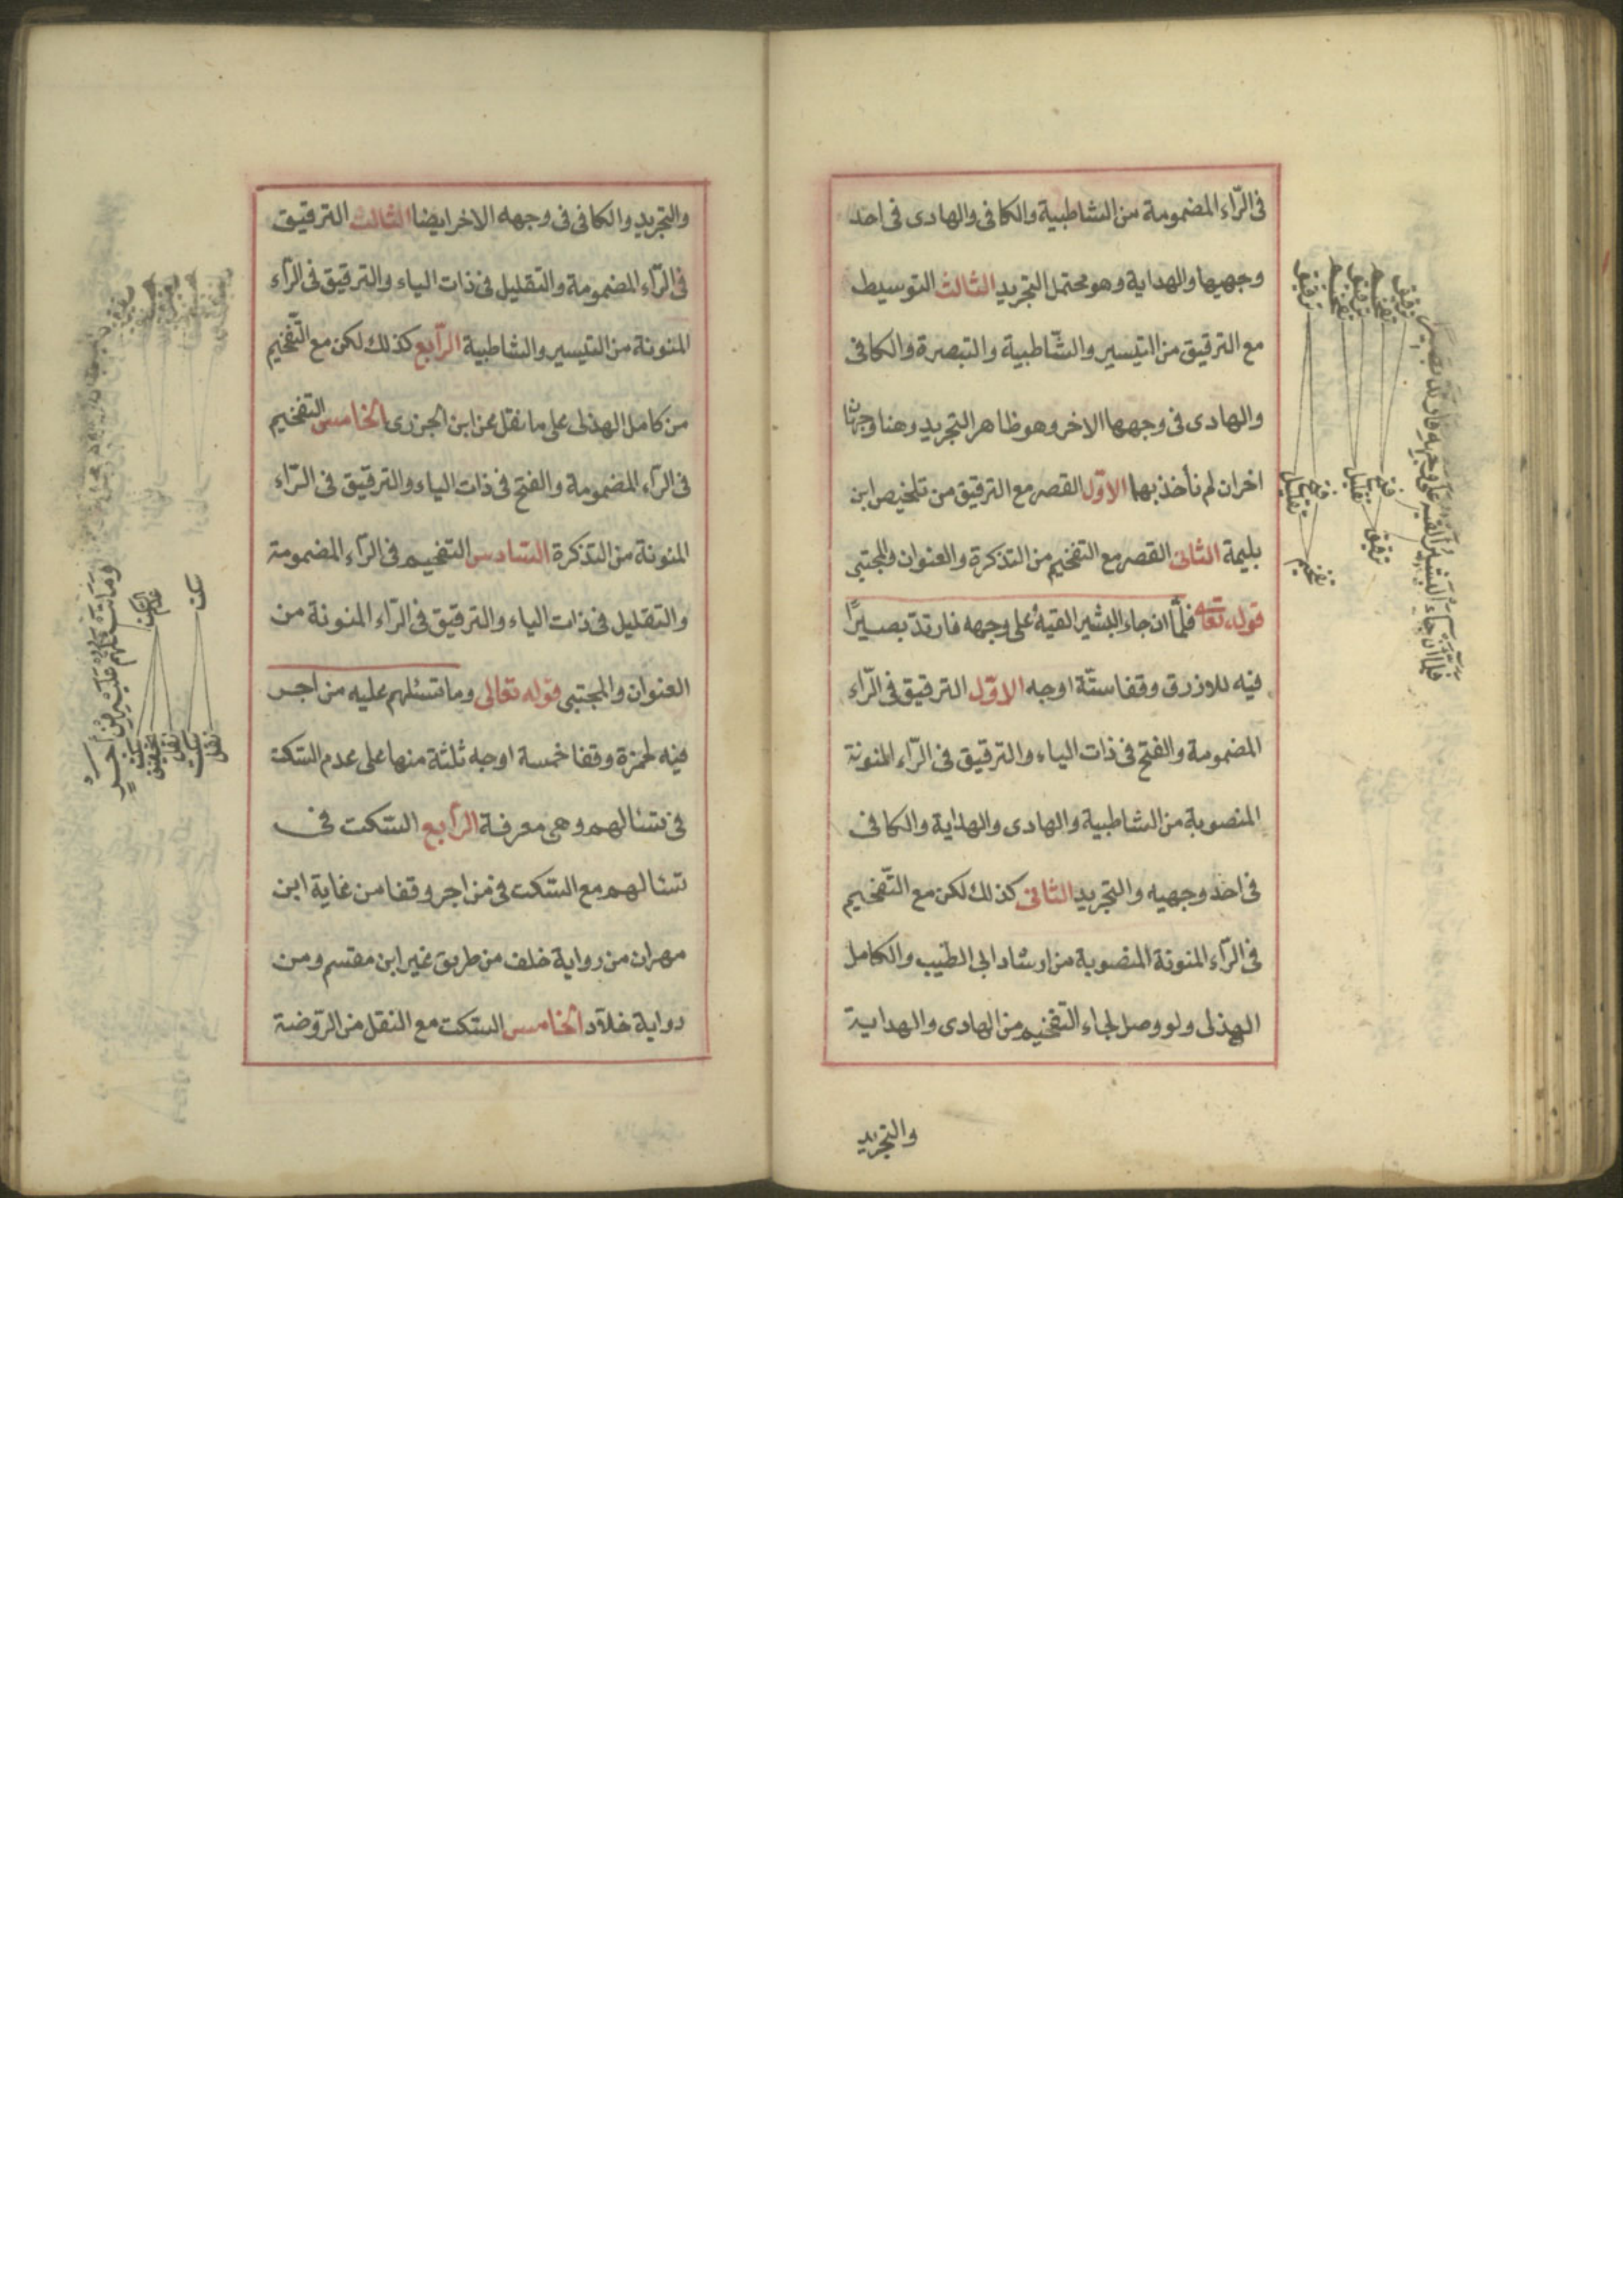 فى الرّاء المضمومة من الشاطبية والكافى والهادى فى احد
وجهيها والهداية وهو محتمل التجريد الثالث التوسيط
مع الترقيق من التيسير والشّاطبية والتبصرة والكافى
والهادى فى وجهها الاخر وهو ظاهر التجريد وهنا وجهان
اخران لم نأخذ بهما الاوّل القصر مع الترقيق من تلخيص ابن
بليمة الثانى القصر مع التفخيم من التذكرة والعنوان والمجتبى
قوله تعا فلمّا ان جاء البشير القيه على وجهه فارتدّ بصيرًا
فيه للازرق وقفا ستّة اوجه الاوّل الترقيق فى الرّاء
المضمومة والفتح فى ذات الياء والترقيق فى الرّاء المنونة
المنصوبة من الشاطبية والهادى والهداية والكافى
فى احد وجهيه والتجريد الثانى كذلك لكن مع التّفخيم
فى الرّاء المنونة المنصوبة من ارشاد ابى الطيب والكامل
الهذلى ولو وصل لجاء التفخيم من الهادى والهداية
والتجريد
فلمّا ان جاء البشير القيه على وجهه فارتدّ بصيرا
ترقيق
تفخيم
ترقيق
تفخيم
ترقيق
فتح
تقليل
فتح
تقليل
ترقيق
تفخيم
والتجريد والكافى فى وجهه الاخر ايضا الثالث الترقيق
فى الرّاء المضمومة والتقليل فى ذات الياء والترقيق فى الراء
المنونة من التيسير والشاطبية الرّابع كذلك لكن مع التّفخيم
من كامل الهذلى على ما نقل عن ابن الجزرى الخامس التفخيم
فى الراء المضمومة والفتح فى ذات الياء والترقيق فى الرّاء
المنونة من التذكرة السّادس التفخيم فى الراء المضمومة
والتقليل فى ذات الياء والترقيق فى الرّاء المنونة من
العنوان والمجتبى قوله تعالى وما تسئلهم عليه من اجر
فيه لحمزة وقفا خمسة اوجه ثلثة منها على عدم السّكت
فى تسئالهم وهى معرفة الرّابع السّكت فى
تسئالهم مع السّكت فى من اجر وقفا من غاية ابن
مهران من رواية خلف من طريق غير ابن مقسم ومن
رواية خلاّد الخامس السّكت مع النقل من الرّوضة
وما تسئلهم عليه من اجر
سكت
سكت
نقل
تحقيق
سكت
نقل